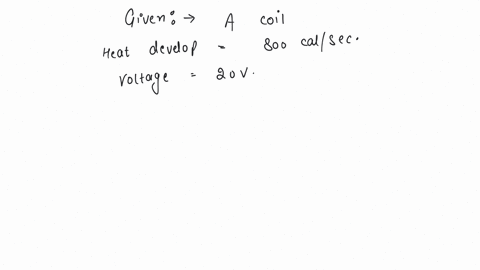 Given:→ A coil
Heat develop = 800 cal/sec.
Voltage = 20V.